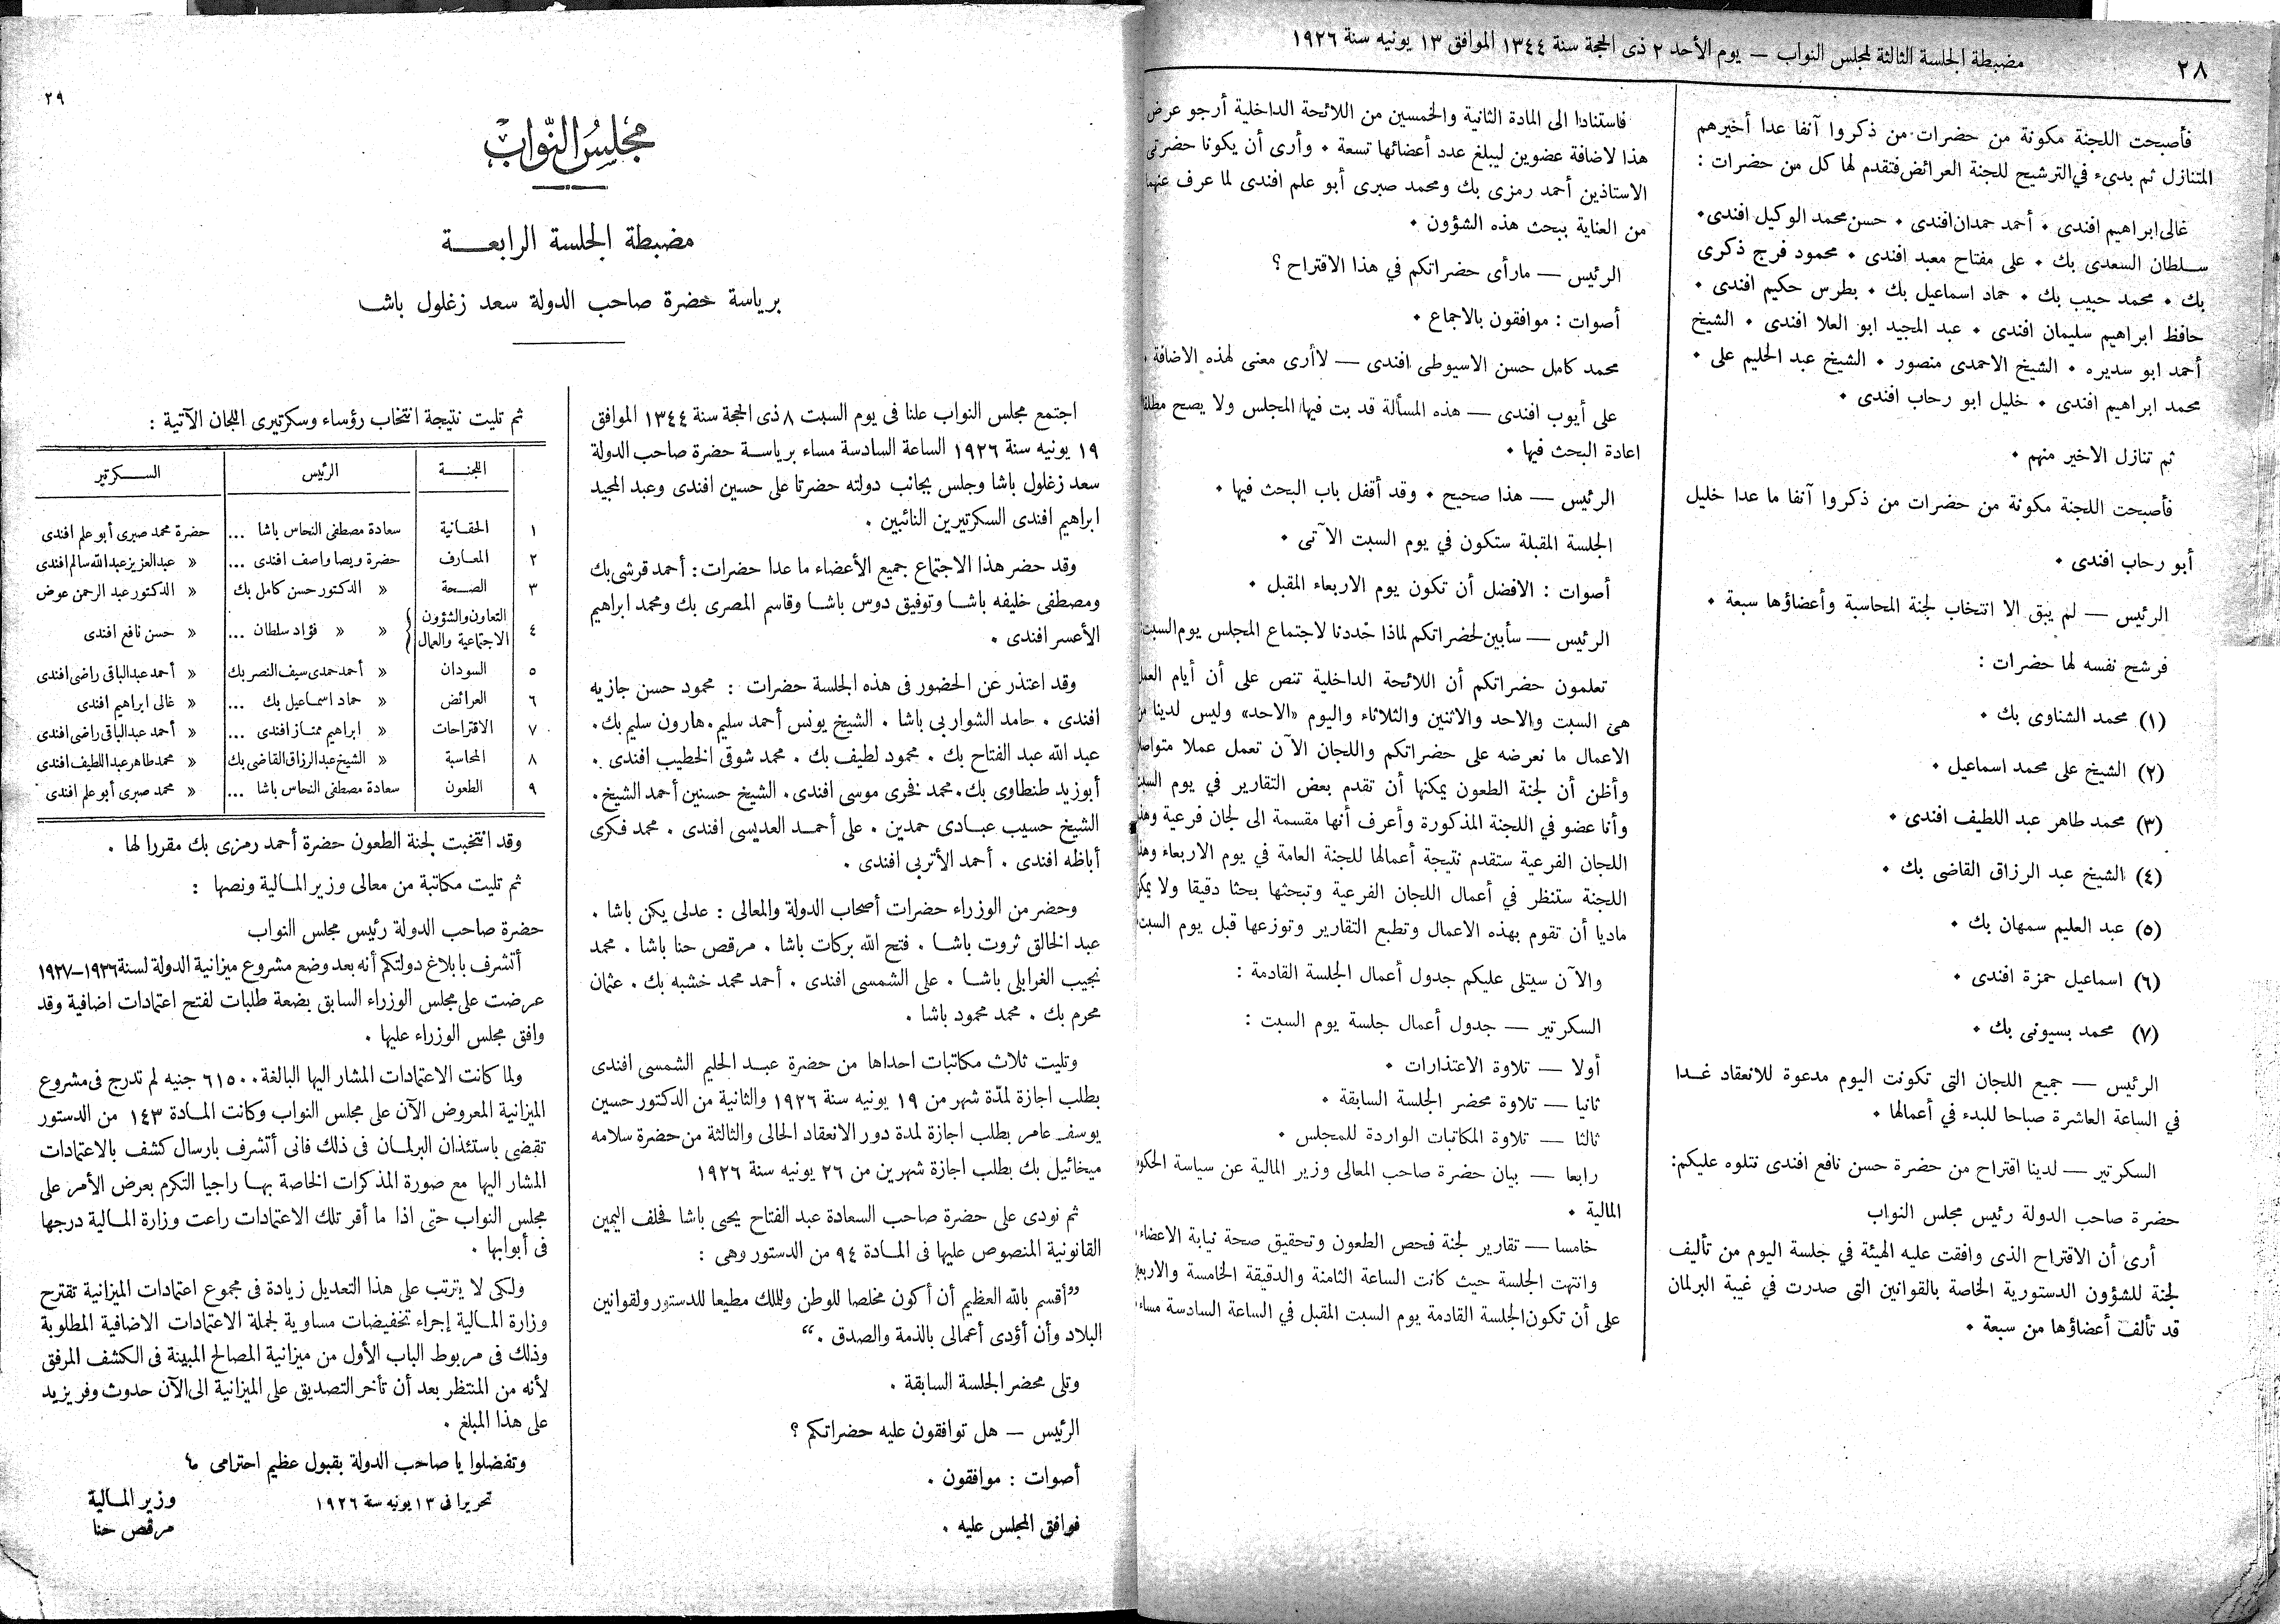 ٢٨
مضبطة الجلسة الثالثة لمجلس النواب — يوم الأحد ٢ ذى الحجة سنة ١٣٤٤ الموافق ١٣ يونيه سنة ١٩٢٦
فأصبحت اللجنة مكونة من حضرات من ذكروا آنفا عدا أخيرهم
المتنازل ثم بدىء في الترشيح للجنة العرائض فتقدم لها كل من حضرات :
غالى ابراهيم افندى ٠ أحمد حمدان افندى ٠ حسن محمد الوكيل افندى ٠
سلطان السعدى بك ٠ على مفتاح معبد افندى ٠ محمود فرج ذكرى
بك ٠ محمد حبيب بك ٠ حماد اسماعيل بك ٠ بطرس حكيم افندى ٠
حافظ ابراهيم سليمان افندى ٠ عبد المجيد ابو العلا افندى ٠ الشيخ
أحمد ابو سديره ٠ الشيخ الاحمدى منصور ٠ الشيخ عبد الحليم على ٠
محمد ابراهيم افندى ٠ خليل ابو رحاب افندى ٠
ثم تنازل الاخير منهم ٠
فأصبحت اللجنة مكونة من حضرات من ذكروا آنفا ما عدا خليل
أبو رحاب افندى ٠
الرئيس — لم يبق الا انتخاب لجنة المحاسبة وأعضاؤها سبعة ٠
فرشح نفسه لها حضرات :
(١) محمد الشناوى بك ٠
(٢) الشيخ على محمد اسماعيل ٠
(٣) محمد طاهر عبد اللطيف افندى ٠
(٤) الشيخ عبد الرزاق القاضى بك ٠
(٥) عبد العليم سمهان بك ٠
(٦) اسماعيل حمزة افندى ٠
(٧) محمد بسيونى بك ٠
الرئيس — جميع اللجان التى تكونت اليوم مدعوة للانعقاد غدا
في الساعة العاشرة صباحا للبدء في أعمالها ٠
السكرتير — لدينا اقتراح من حضرة حسن نافع افندى نتلوه عليكم :
حضرة صاحب الدولة رئيس مجلس النواب
أرى أن الاقتراح الذى وافقت عليه الهيئة في جلسة اليوم من تأليف
لجنة للشؤون الدستورية الخاصة بالقوانين التى صدرت في غيبة البرلمان
قد تألف أعضاؤها من سبعة ٠
فاستنادا الى المادة الثانية والخمسين من اللائحة الداخلية أرجو عرض
هذا لاضافة عضوين ليبلغ عدد أعضائها تسعة ٠ وأرى أن يكونا حضرتى
الاستاذين أحمد رمزى بك ومحمد صبرى أبو علم افندى لما عرف عنهما
من العناية ببحث هذه الشؤون ٠
الرئيس — مارأى حضراتكم في هذا الاقتراح ؟
أصوات : موافقون بالاجماع ٠
محمد كامل حسن الاسيوطى افندى — لاأرى معنى لهذه الاضافة ٠
على أيوب افندى — هذه المسألة قد بت فيها المجلس ولا يصح مطلقا
اعادة البحث فيها ٠
الرئيس — هذا صحيح ٠ وقد أقفل باب البحث فيها ٠
الجلسة المقبلة ستكون في يوم السبت الآتى ٠
أصوات : الافضل أن تكون يوم الاربعاء المقبل ٠
الرئيس — سأبين لحضراتكم لماذا حددنا لاجتماع المجلس يوم السبت
تعلمون حضراتكم أن اللائحة الداخلية تنص على أن أيام العمل
هى السبت والاحد والاثنين والثلاثاء واليوم «الاحد» وليس لدينا من
الاعمال ما نعرضه على حضراتكم واللجان الآن تعمل عملا متواصلا
وأظن أن لجنة الطعون يمكنها أن تقدم بعض التقارير في يوم السبت
وأنا عضو في اللجنة المذكورة وأعرف أنها مقسمة الى لجان فرعية وهذه
اللجان الفرعية ستقدم نتيجة أعمالها للجنة العامة في يوم الاربعاء وهذه
اللجنة ستنظر في أعمال اللجان الفرعية وتبحثها بحثا دقيقا ولا يمكن
ماديا أن تقوم بهذه الاعمال وتطبع التقارير وتوزعها قبل يوم السبت
والآن سيتلى عليكم جدول أعمال الجلسة القادمة :
السكرتير — جدول أعمال جلسة يوم السبت :
أولا — تلاوة الاعتذارات ٠
ثانيا — تلاوة محضر الجلسة السابقة ٠
ثالثا — تلاوة المكاتبات الواردة للمجلس ٠
رابعا — بيان حضرة صاحب المعالى وزير المالية عن سياسة الحكومة
المالية ٠
خامسا — تقارير لجنة فحص الطعون وتحقيق صحة نيابة الاعضاء
وانتهت الجلسة حيث كانت الساعة الثامنة والدقيقة الخامسة والاربعين
على أن تكون الجلسة القادمة يوم السبت المقبل في الساعة السادسة مساء
٢٩
مجلس النواب
مضبطة الجلسة الرابعة
برياسة حضرة صاحب الدولة سعد زغلول باشا
اجتمع مجلس النواب علنا فى يوم السبت ٨ ذى الحجة سنة ١٣٤٤ الموافق
١٩ يونيه سنة ١٩٢٦ الساعة السادسة مساء برياسة حضرة صاحب الدولة
سعد زغلول باشا وجلس بجانب دولته حضرتا على حسين افندى وعبد المجيد
ابراهيم افندى السكرتيرين النائبين .
وقد حضر هذا الاجتماع جميع الأعضاء ما عدا حضرات : أحمد قرشى بك
ومصطفى خليفه باشا وتوفيق دوس باشا وقاسم المصرى بك ومحمد ابراهيم
الأعسر افندى .
وقد اعتذر عن الحضور فى هذه الجلسة حضرات : محمود حسن جازيه
افندى . حامد الشواربى باشا . الشيخ يونس أحمد سليم . هارون سليم بك .
عبد الله عبد الفتاح بك . محمود لطيف بك . محمد شوقى الخطيب افندى .
أبوزيد طنطاوى بك . محمد فخرى موسى افندى . الشيخ حسنين أحمد الشيخ .
الشيخ حسيب عبادى حمدين . على أحمد العديسى افندى . محمد فكرى
أباظه افندى . أحمد الأتربى افندى .
وحضر من الوزراء حضرات أصحاب الدولة والمعالى : عدلى يكن باشا .
عبد الخالق ثروت باشا . فتح الله بركات باشا . مرقص حنا باشا . محمد
نجيب الغرابلى باشا . على الشمسى افندى . أحمد محمد خشبه بك . عثمان
محرم بك . محمد محمود باشا .
وتليت ثلاث مكاتبات احداها من حضرة عبد الحليم الشمسى افندى
بطلب اجازة لمدّة شهر من ١٩ يونيه سنة ١٩٢٦ والثانية من الدكتور حسين
يوسف عامر بطلب اجازة لمدة دور الانعقاد الحالى والثالثة من حضرة سلامه
ميخائيل بك بطلب اجازة شهرين من ٢٦ يونيه سنة ١٩٢٦
ثم نودى على حضرة صاحب السعادة عبد الفتاح يحيى باشا فحلف اليمين
القانونية المنصوص عليها فى المادة ٩٤ من الدستور وهى :
”أقسم بالله العظيم أن أكون مخلصا للوطن وللملك مطيعا للدستور ولقوانين
البلاد وأن أؤدى أعمالى بالذمة والصدق .“
وتلى محضر الجلسة السابقة .
الرئيس — هل توافقون عليه حضراتكم ؟
أصوات : موافقون .
فوافق المجلس عليه .
ثم تليت نتيجة انتخاب رؤساء وسكرتيرى اللجان الآتية :
اللجنة الرئيس السكرتير
١ الحقانية سعادة مصطفى النحاس باشا ... حضرة محمد صبرى أبو علم افندى
٢ المعارف حضرة ويصا واصف افندى ... » عبد العزيز عبد الله سالم افندى
٣ الصحة » الدكتور حسن كامل بك » الدكتور عبد الرحمن عوض
٤ التعاون والشؤون الاجتماعية والعمال » » فؤاد سلطان ... » حسن نافع افندى
٥ السودان » أحمد حمدى سيف النصر بك » أحمد عبد الباقى راضى افندى
٦ العرائض » حماد اسماعيل بك ... » غالى ابراهيم افندى
٧ الاقتراحات » ابراهيم ممتاز افندى ... » أحمد عبد الباقى راضى افندى
٨ المحاسبة » الشيخ عبد الرزاق القاضى بك » محمد طاهر عبد اللطيف افندى
٩ الطعون سعادة مصطفى النحاس باشا ... » محمد صبرى أبو علم افندى
وقد انتخبت لجنة الطعون حضرة أحمد رمزى بك مقررا لها .
ثم تليت مكاتبة من معالى وزير المالية ونصها :
حضرة صاحب الدولة رئيس مجلس النواب
أتشرف بابلاغ دولتكم أنه بعد وضع مشروع ميزانية الدولة لسنة ١٩٢٦–١٩٢٧
عرضت على مجلس الوزراء السابق بضعة طلبات لفتح اعتمادات اضافية وقد
وافق مجلس الوزراء عليها .
ولما كانت الاعتمادات المشار اليها البالغة ٦١٥٠٠ جنيه لم تدرج فى مشروع
الميزانية المعروض الآن على مجلس النواب وكانت المادة ١٤٣ من الدستور
تقضى باستئذان البرلمان فى ذلك فانى أتشرف بارسال كشف بالاعتمادات
المشار اليها مع صورة المذكرات الخاصة بها راجيا التكرم بعرض الأمر على
مجلس النواب حتى اذا ما أقر تلك الاعتمادات راعت وزارة المالية درجها
فى أبوابها .
ولكى لا يترتب على هذا التعديل زيادة فى مجموع اعتمادات الميزانية تقترح
وزارة المالية إجراء تخفيضات مساوية لجملة الاعتمادات الاضافية المطلوبة
وذلك فى مربوط الباب الأول من ميزانية المصالح المبينة فى الكشف المرفق
لأنه من المنتظر بعد أن تأخر التصديق على الميزانية الى الآن حدوث وفر يزيد
على هذا المبلغ .
وتفضلوا يا صاحب الدولة بقبول عظيم احترامى
تحريرا فى ١٣ يونيه سنة ١٩٢٦
وزير المالية
مرقص حنا